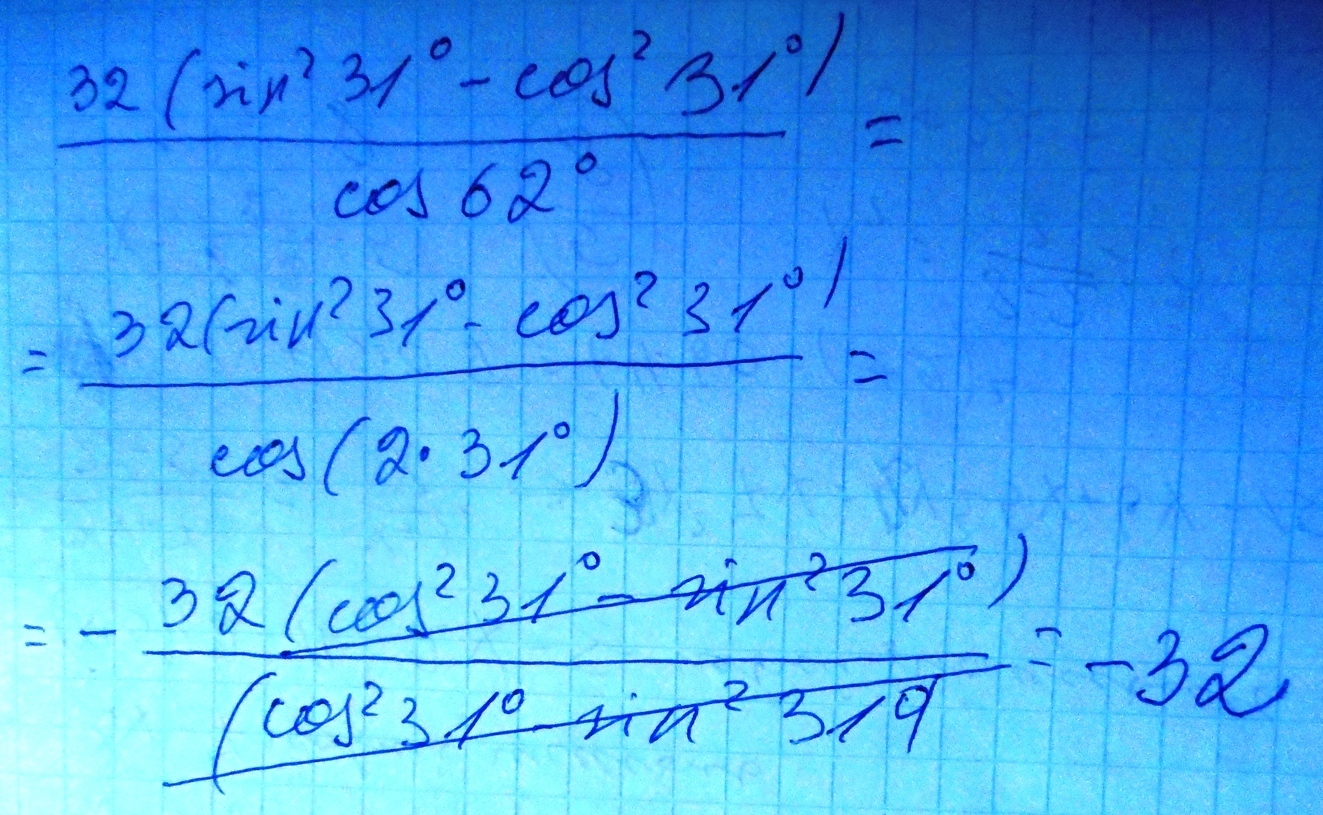 32 (sin² 31° - cos² 31°) =
cos 62°
= 32 (sin² 31° - cos² 31°) =
cos (2 · 31°)
= - 32 (cos² 31° - sin² 31°) = -32
(cos² 31° - sin² 31°)